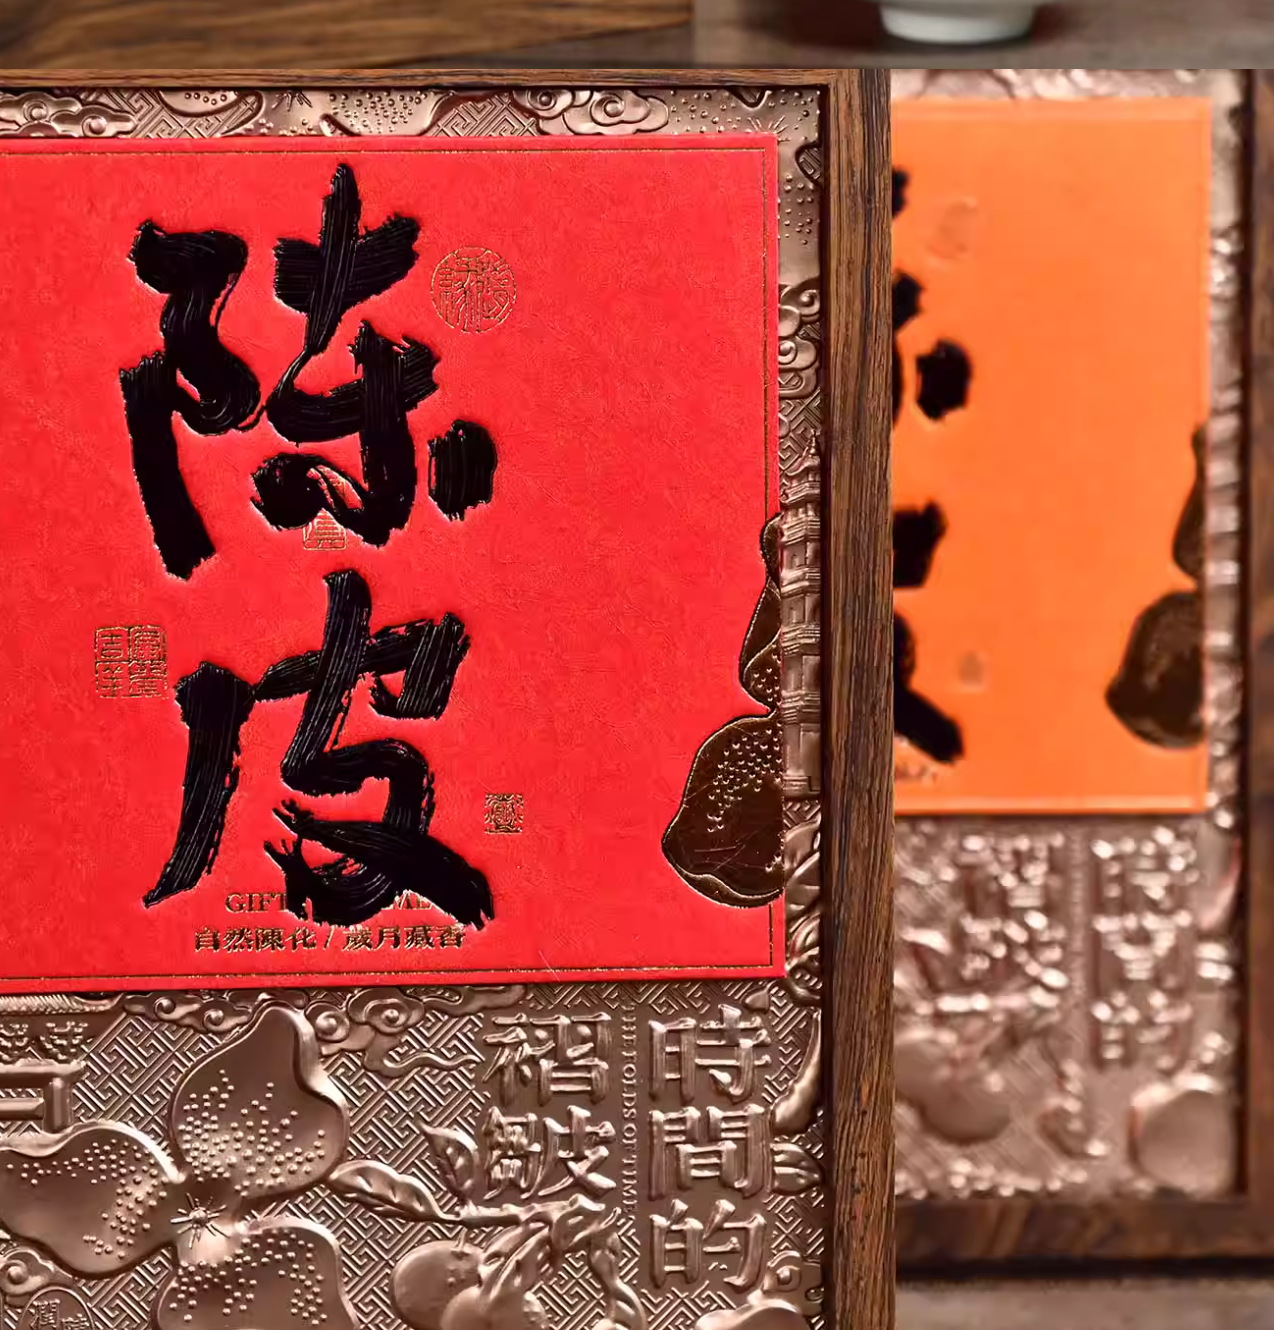 陈皮
GIFT
自然陳化 / 歲月藏香
時間的
褶皺
THE FOLDS OF TIME